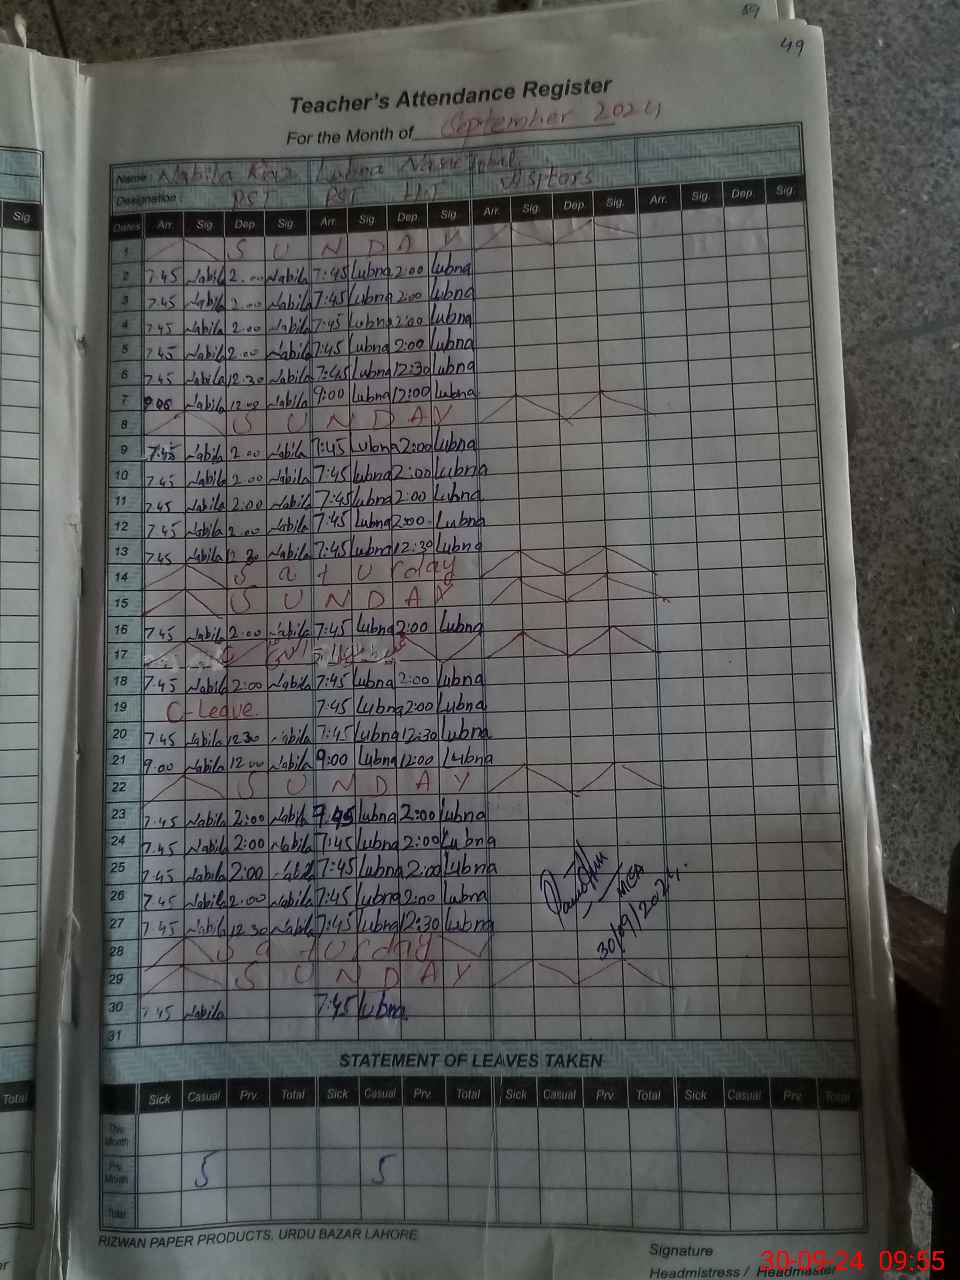 89
49
Teacher's Attendance Register
For the Month of September 2024
Name: Nabila Riaz Lubna Nasir Iqbal
Designation: PST PST Visitors
Sig. Dates Arr. Sig. Dep. Sig. Arr. Sig. Dep. Sig. Arr. Sig. Dep. Sig. Arr. Sig. Dep. Sig.
1 SUNDAY
2 7.45 Nabila 2.00 Nabila 7:45 Lubna 2:00 Lubna
3 7.45 Nabila 2.00 Nabila 7:45 Lubna 2:00 Lubna
4 7.45 Nabila 2.00 Nabila 7:45 Lubna 2:00 Lubna
5 7.45 Nabila 2.00 Nabila 7:45 Lubna 2:00 Lubna
6 7.45 Nabila 12.30 Nabila 7:45 Lubna 12:30 Lubna
7 9.00 Nabila 12.00 Nabila 9:00 Lubna 12:00 Lubna
8 SUNDAY
9 7.45 Nabila 2.00 Nabila 7:45 Lubna 2:00 Lubna
10 7.45 Nabila 2.00 Nabila 7:45 Lubna 2:00 Lubna
11 7.45 Nabila 2:00 Nabila 7:45 Lubna 2:00 Lubna
12 7.45 Nabila 2.00 Nabila 7:45 Lubna 2:00 Lubna
13 7.45 Nabila 12.30 Nabila 7:45 Lubna 12:30 Lubna
14 Saturday
15 SUNDAY
16 7.45 Nabila 2.00 Nabila 7:45 Lubna 2:00 Lubna
17
18 7.45 Nabila 2:00 Nabila 7:45 Lubna 2:00 Lubna
19 C-Leave. 7:45 Lubna 2:00 Lubna
20 7.45 Nabila 12.30 Nabila 7:45 Lubna 12:30 Lubna
21 9.00 Nabila 12.00 Nabila 9:00 Lubna 12:00 Lubna
22 SUNDAY
23 7.45 Nabila 2:00 Nabila 7.45 Lubna 2:00 Lubna
24 7.45 Nabila 2:00 Nabila 7:45 Lubna 2:00 Lubna
25 7.45 Nabila 2:00 Nabila 7:45 Lubna 2:00 Lubna
26 7.45 Nabila 2.00 Nabila 7:45 Lubna 2:00 Lubna
MEA
27 7.45 Nabila 12.30 Nabila 7:45 Lubna 12:30 Lubna
30/09/2024.
28 Saturday
29 SUNDAY
30 7.45 Nabila 7:45 Lubna
31
STATEMENT OF LEAVES TAKEN
Total Sick Casual Prv. Total Sick Casual Prv. Total Sick Casual Prv. Total Sick Casual Prv. Total
This Month
Prv. Month 5 5
Total
RIZWAN PAPER PRODUCTS, URDU BAZAR LAHORE
Signature
Headmistress / Headmaster
30-09-24 09:55